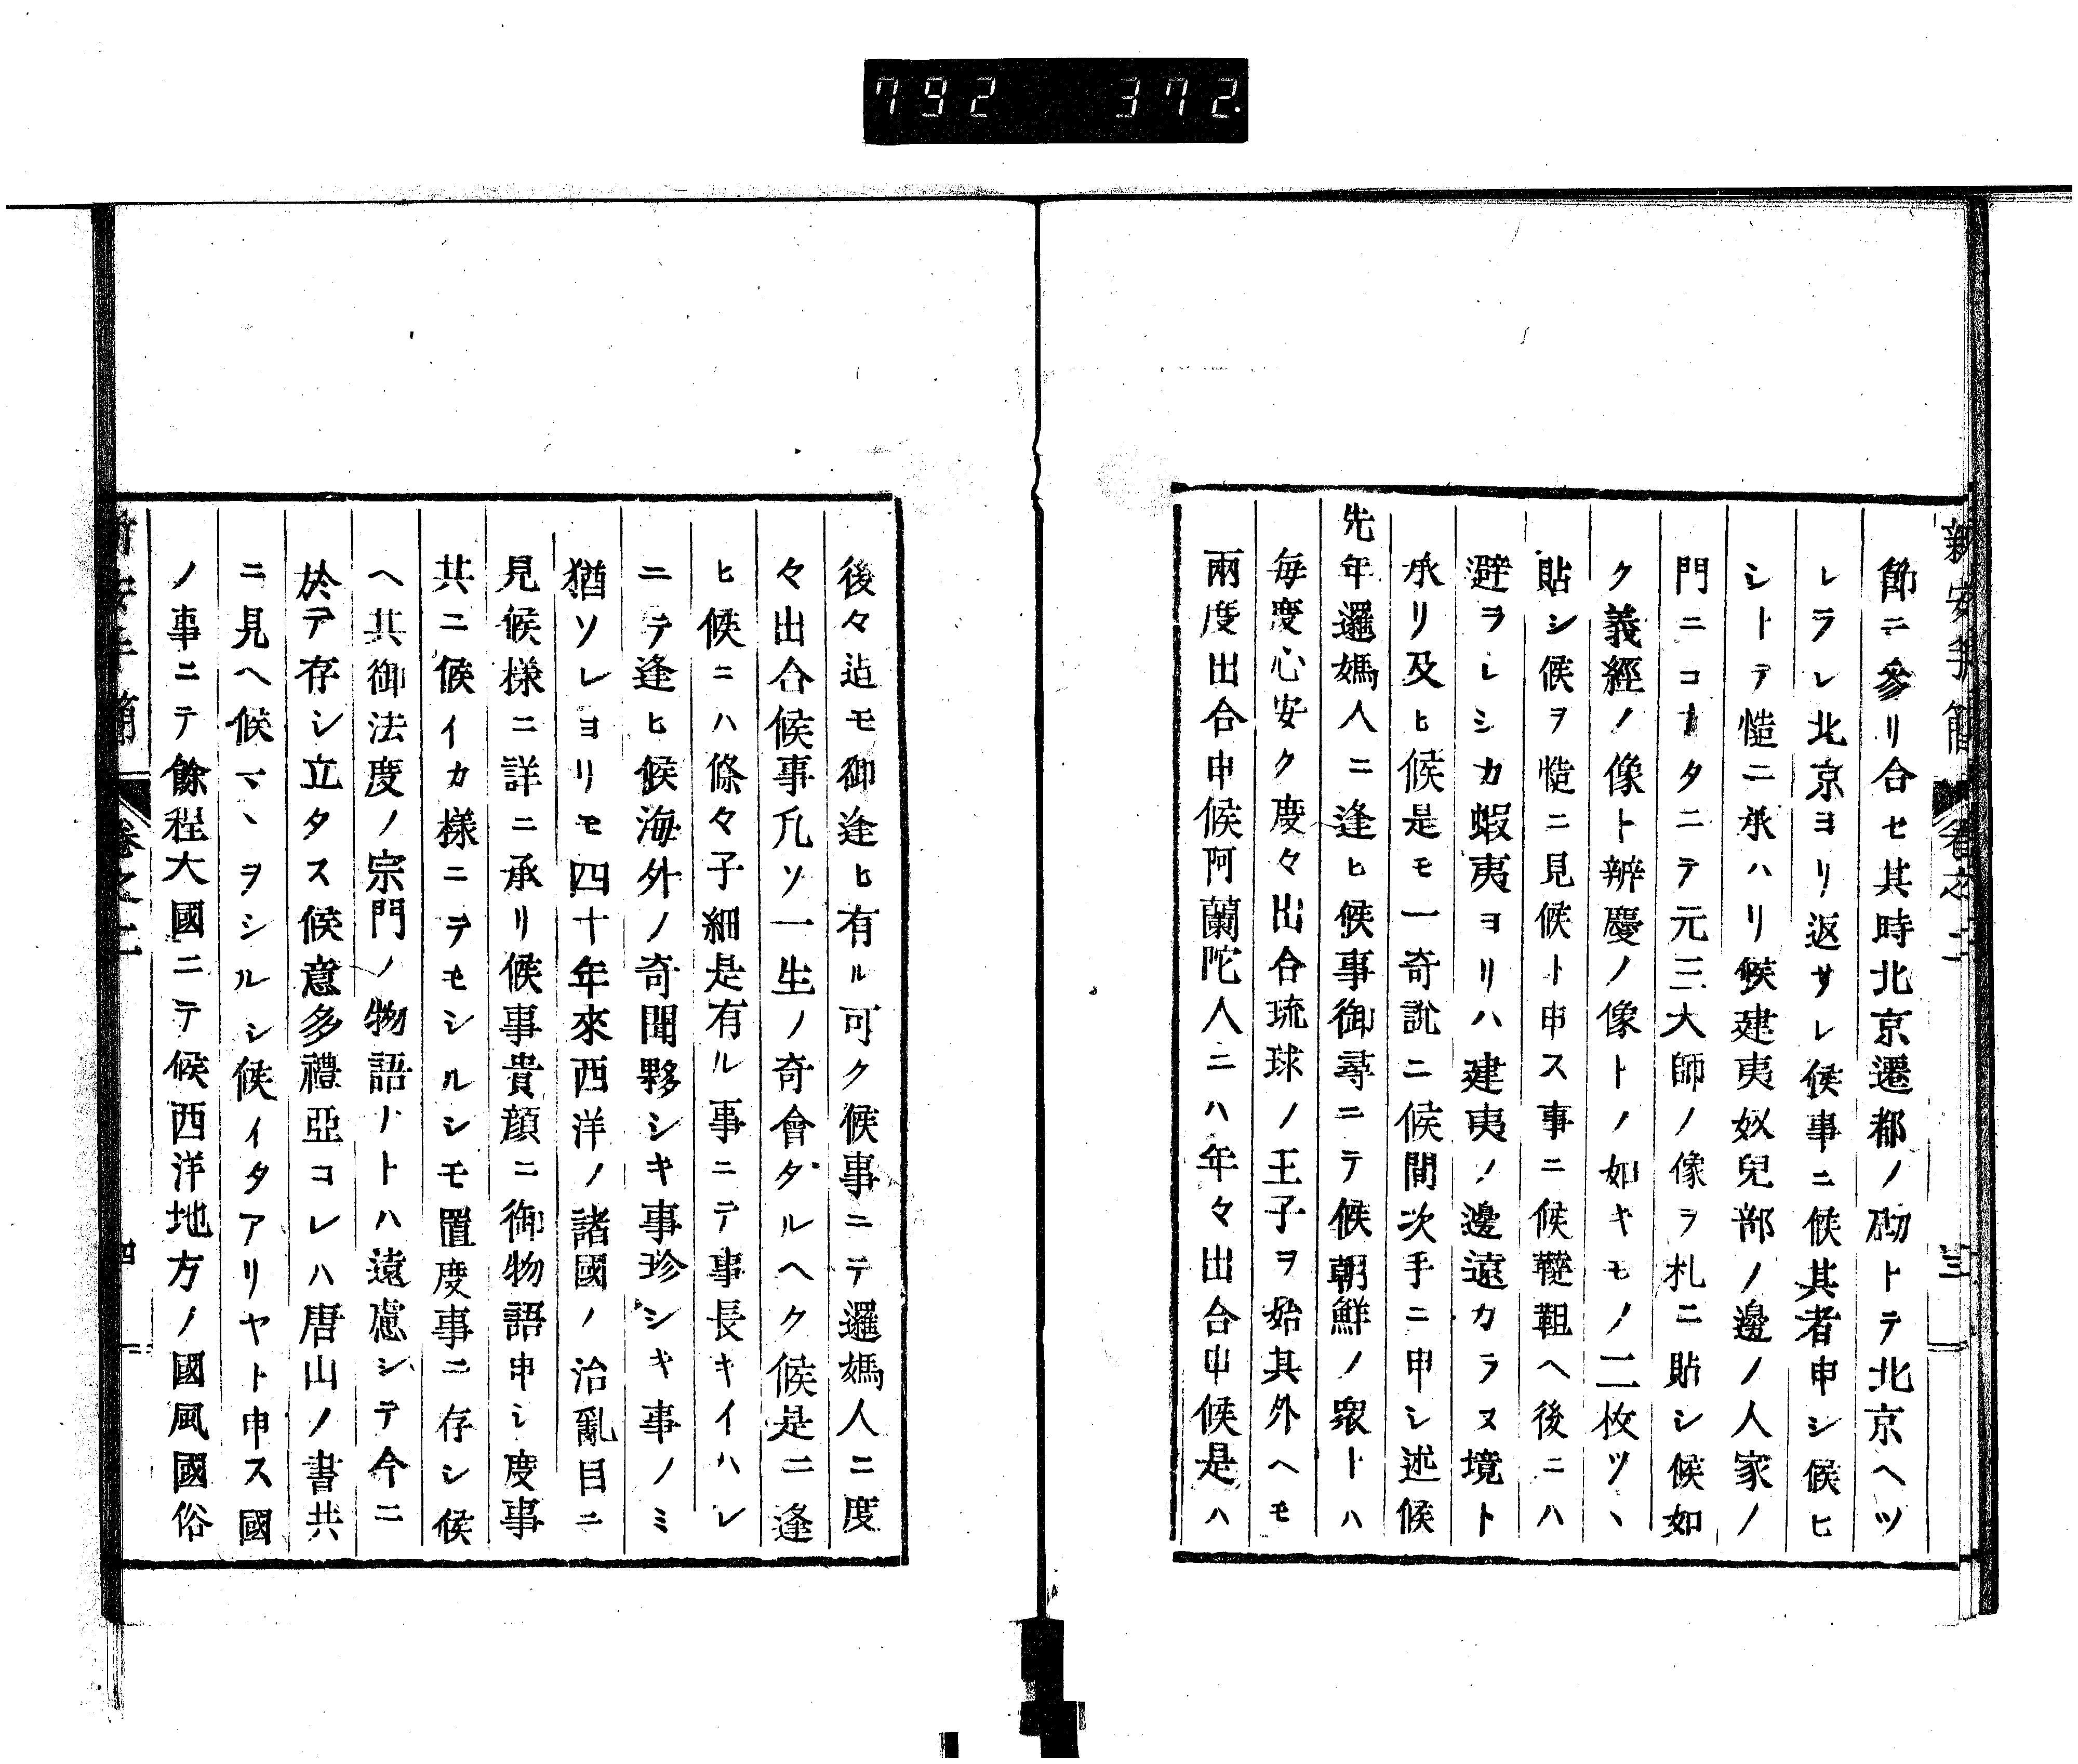 792 372
新安手簡 卷之二 三
節ニ參リ合セ其時北京遷都ノ砌トテ北京ヘツ
レラレ北京ヨリ返サレ候事ニ候其者申シ候ヒ
シトテ慥ニ承ハリ候建夷奴兒部ノ邊ノ人家ノ
門ニコータニテ元三大師ノ像ヲ札ニ貼シ候如
ク義經ノ像ト辨慶ノ像トノ如キモノ二枚ツヽ
貼シ候ヲ慥ニ見候ト申ス事ニ候韃靼ヘ後ニハ
避ヲレシカ蝦夷ヨリハ建夷ノ邊遠カラヌ境ト
承リ及ヒ候是モ一奇說ニ候間次手ニ申シ述候
先年邏媽人ニ逢ヒ候事御尋ニテ候朝鮮ノ衆トハ
每度心安ク慶々出合琉球ノ王子ヲ始其外ヘモ
兩度出合申候阿蘭陀人ニハ年々出合申候是ハ
後々迠モ御逢ヒ有ル可ク候事ニテ邏媽人ニ度
々出合候事凡ソ一生ノ奇會タルヘク候是ニ逢
ヒ候ニハ條々子細是有ル事ニテ事長キイハレ
ニテ逢ヒ候海外ノ奇聞夥シキ事珍シキ事ノミ
猶ソレヨリモ四十年來西洋ノ諸國ノ治亂目ニ
見候様ニ詳ニ承リ候事貴顔ニ御物語申シ度事
共ニ候イカ様ニテモシルシモ置度事ニ存シ候
ヘ共御法度ノ宗門ノ物語ナトハ遠慮シテ今ニ
於テ存シ立タス候意多禮亞コレハ唐山ノ書共
ニ見ヘ候マヽヲシルシ候イタアリヤト申ス國
ノ事ニテ餘程大國ニテ候西洋地方ノ國風國俗
新安手簡 卷之二 四